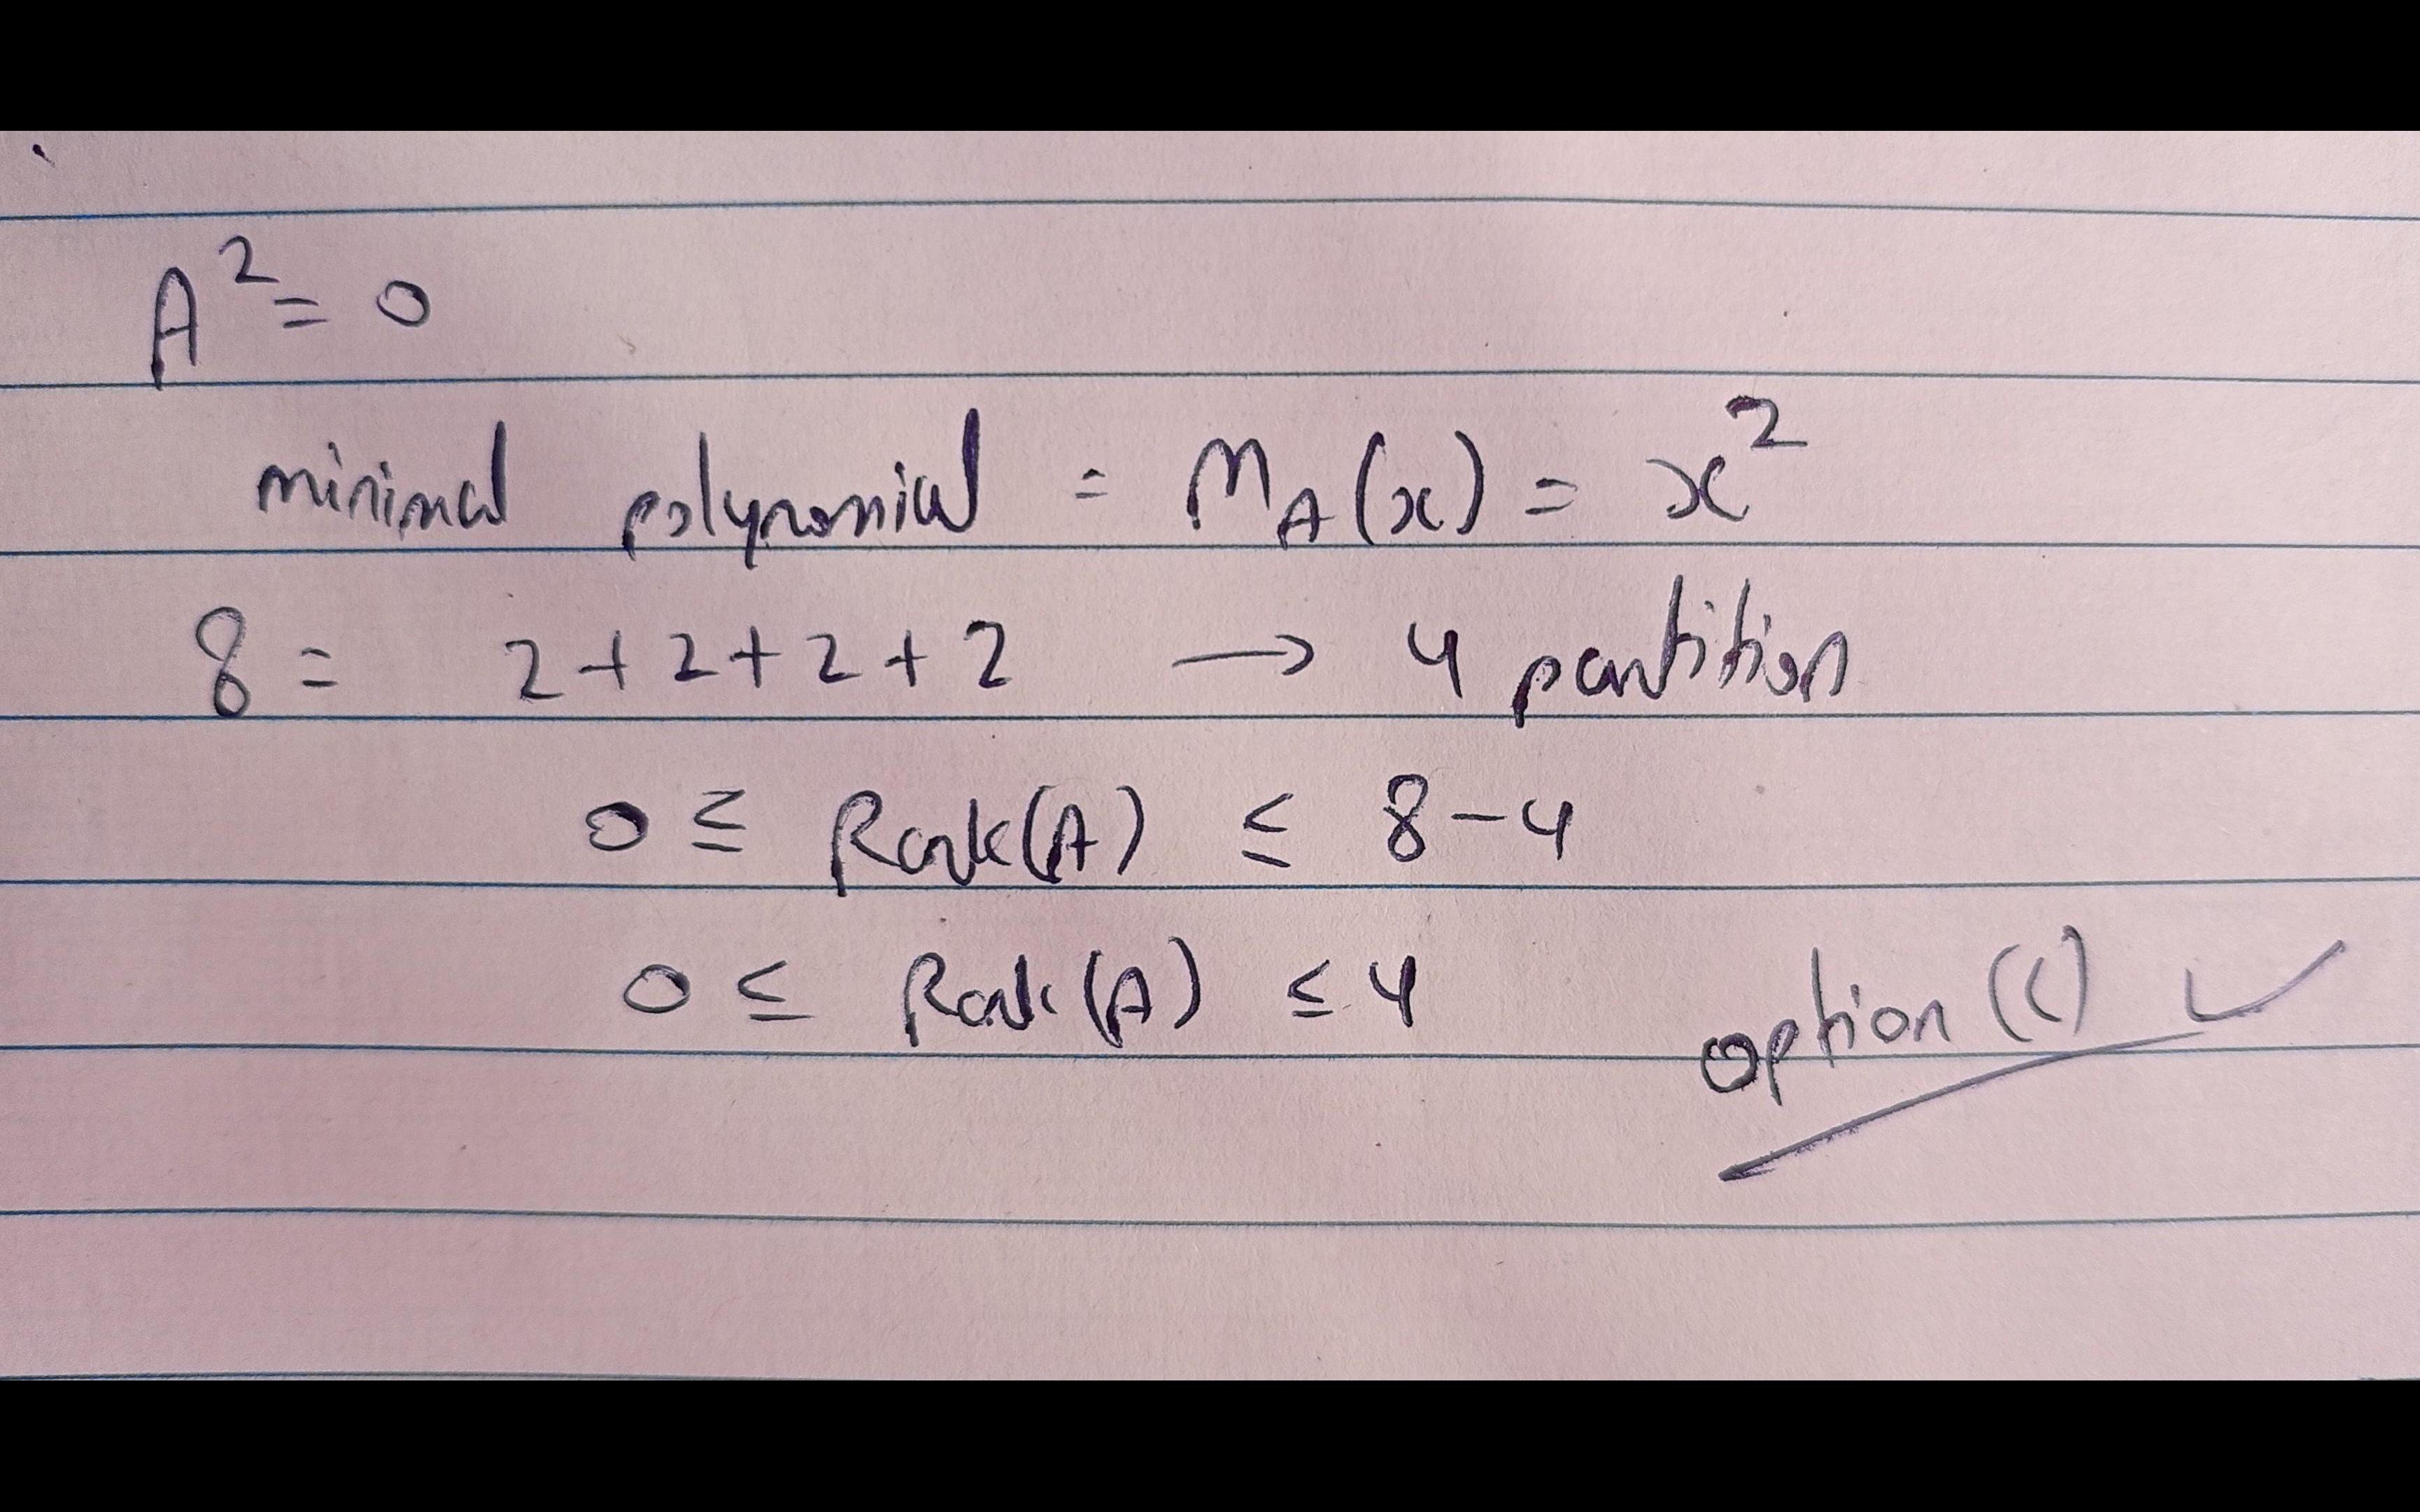 A² = 0
minimal polynomial = m_A(x) = x²
8 = 2+2+2+2 → 4 partition
0 ≤ Rank(A) ≤ 8-4
0 ≤ Rank(A) ≤ 4
option (C) ✓